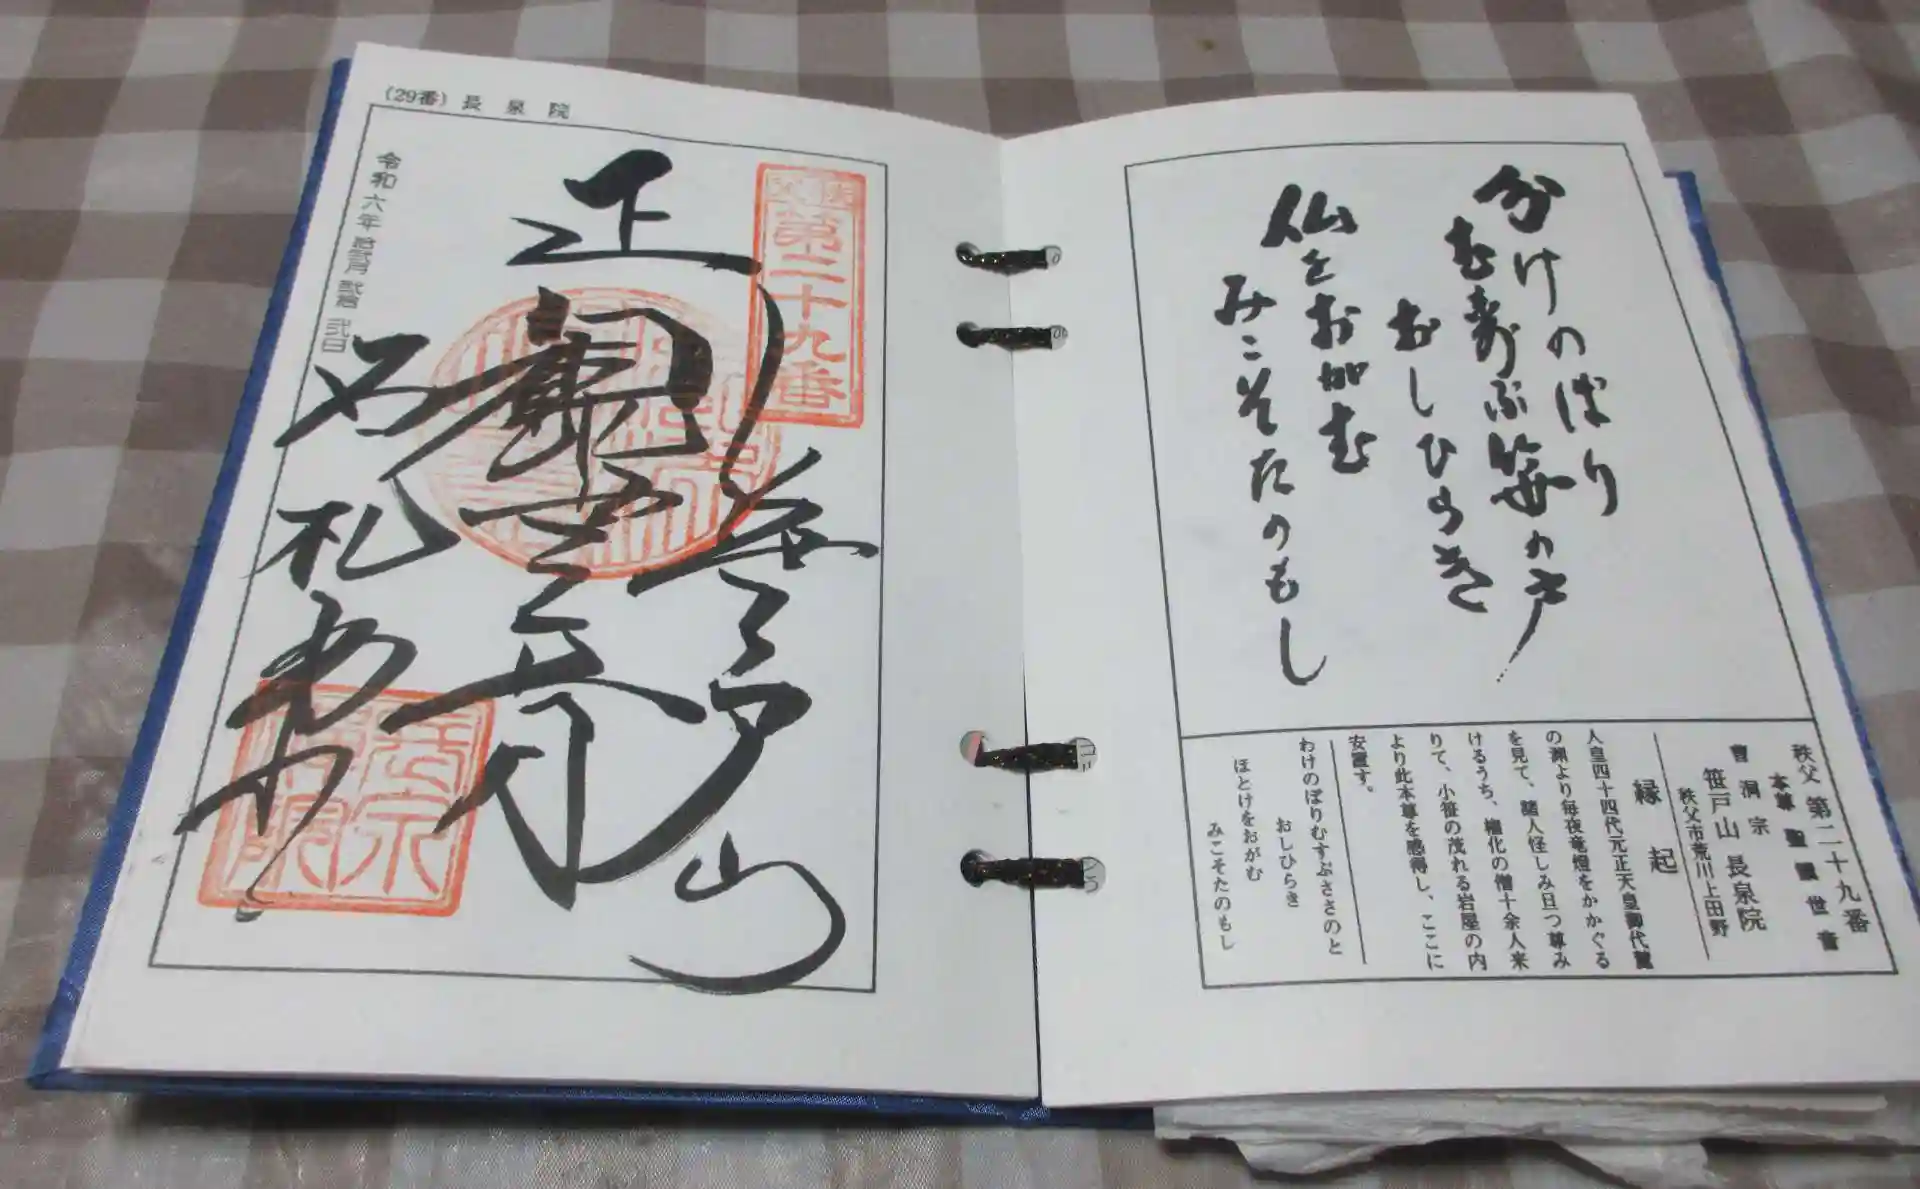 分けのぼり
む寿ぶ笹の戸
おしひらき
仏をお加む
みこそたのもし
秩父 第二十九番
本尊 聖觀世音
曹洞宗
笹戸山 長泉院
秩父市荒川上田野
縁起
人皇四十四代元正天皇御代麓
の淵より毎夜竜燈をかかぐる
を見て、諸人怪しみ且つ尊み
けるうち、権化の僧十余人来
りて、小笹の茂れる岩屋の内
より此本尊を感得し、ここに
安置す。
わけのぼりむすぶささのと
おしひらき
ほとけをおがむ
みこそたのもし
(29番) 長泉院
第二十九番
笹戸山
正観世音
石札堂
令和六年 拾弐月 弐拾弐日